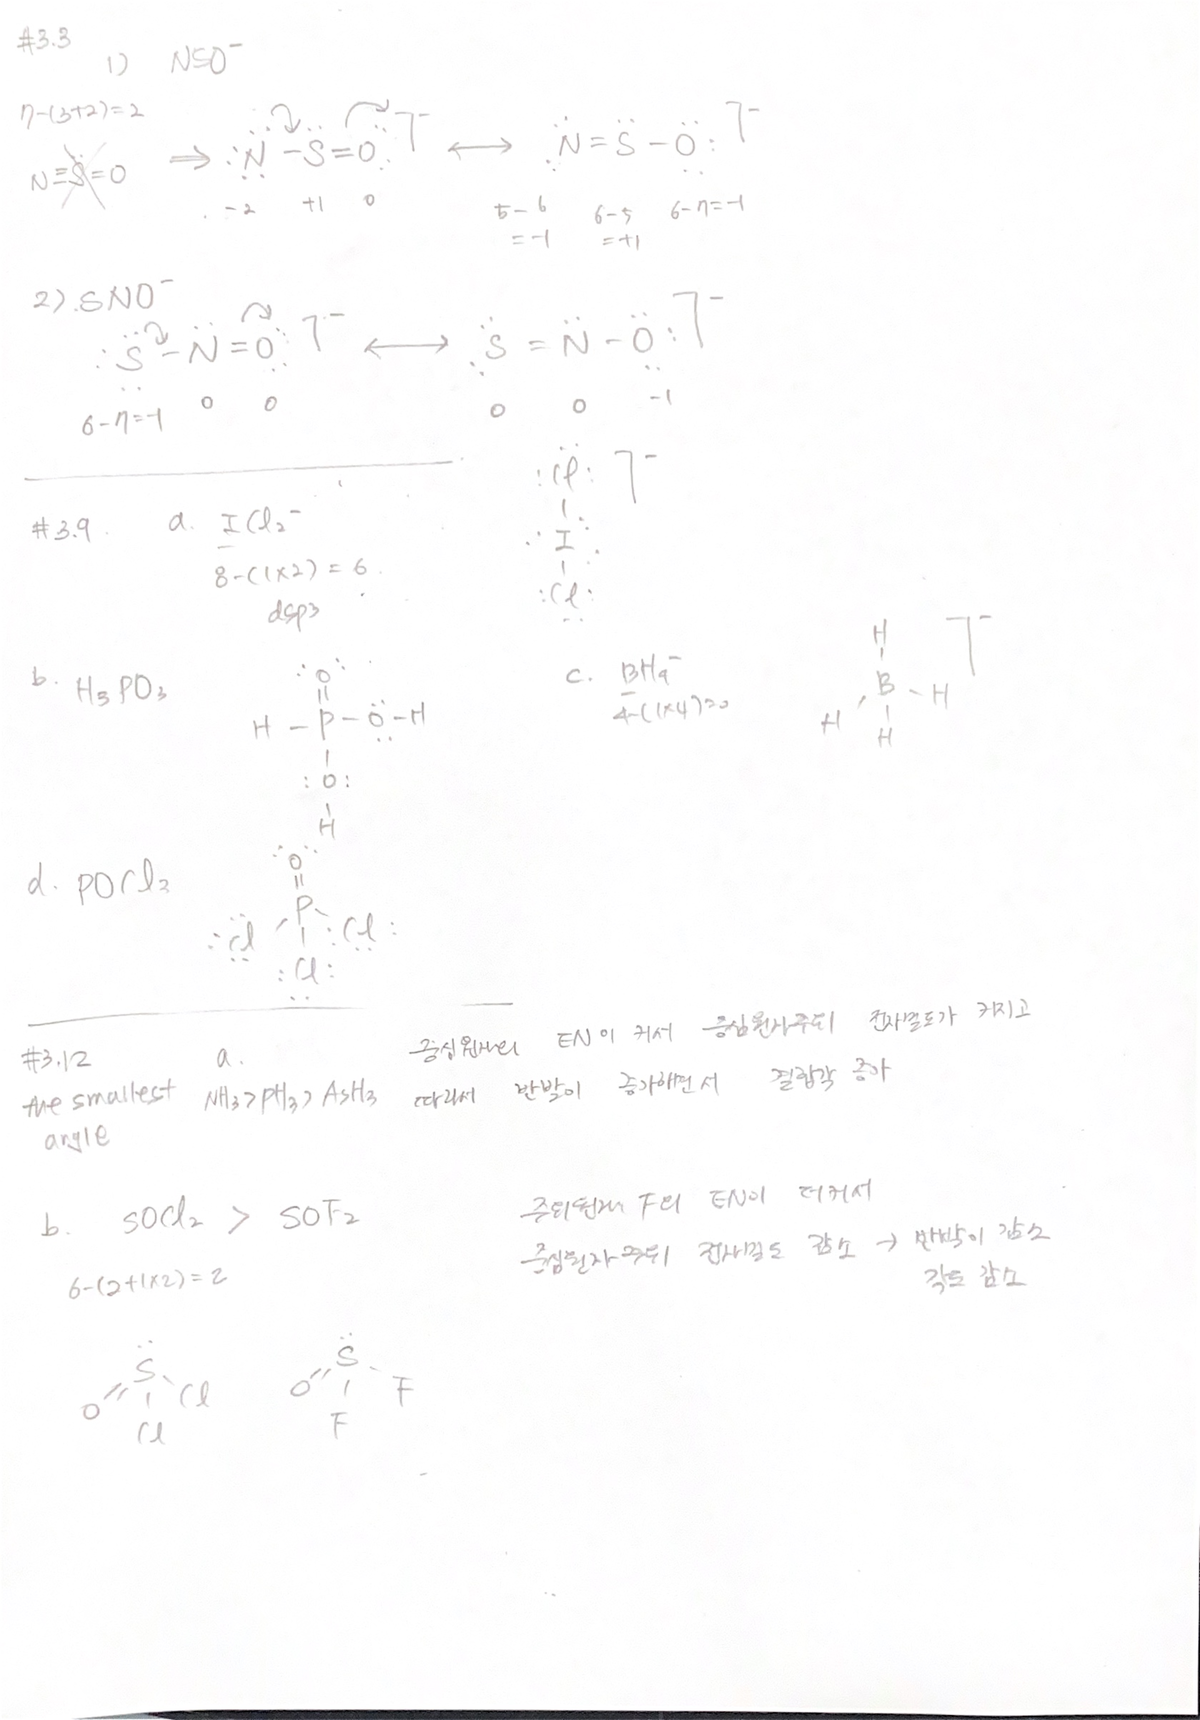 #3.3
1) NSO⁻
7-(3+2)=2
N≡S̈=O ⇒ :N̈-S̈=O:]⁻ ↔ :N̈=S̈-Ö:]⁻
-2 +1 0
5-6 =-1
6-5 =+1
6-7=-1
2). SNO⁻
:S̈-N̈=O:]⁻ ↔ :S̈=N̈-Ö:]⁻
6-7=-1 0 0
0 0 -1
#3.9. a. ICl₂⁻
8-(1×2)=6.
dsp3
:Cl:]⁻
I
:Cl:
b. H₃PO₃
:O:
H-P-Ö-H
:O:
H
c. BH₄⁻
4-(1×4)=0
H ]⁻
B-H
H
H
d. POCl₃
:O:
P
:Cl :Cl:
:Cl:
#3.12 a.
the smallest angle
NH₃>PH₃>AsH₃
중심원자의 EN이 커서 중심원자주위 전자밀도가 커지고
따라서 반발이 증가하면서 결합각 증가
b. SOCl₂ > SOF₂
6-(2+1×2)=2
주위원자 F의 EN이 더커서
중심원자 주위 전자밀도 감소 → 반발이 감소
각도 감소
S̈ S̈
O Cl O F
Cl F